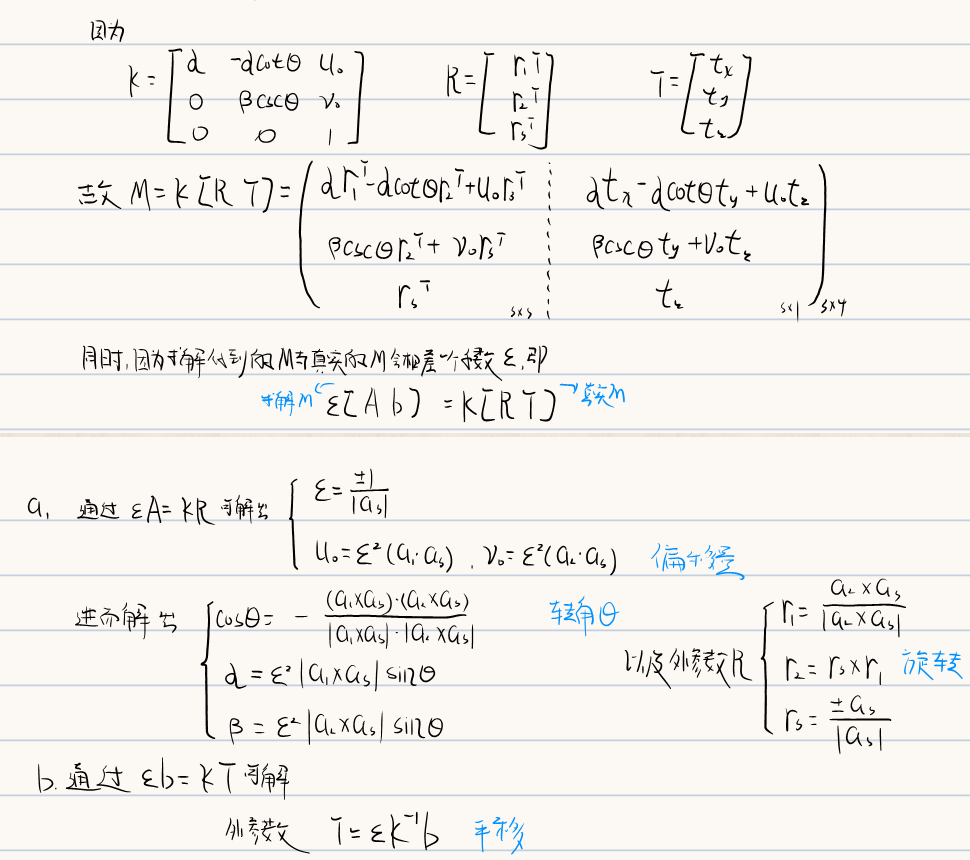 因为
K = [ α -αcotθ u₀ ; 0 βcscθ v₀ ; 0 0 1 ] R = [ r₁ᵀ ; r₂ᵀ ; r₃ᵀ ] T = [ tₓ ; t_y ; t_z ]
故 M = K [R T] = ( αr₁ᵀ-αcotθr₂ᵀ+u₀r₃ᵀ αtₓ-αcotθt_y+u₀t_z
βcscθr₂ᵀ+v₀r₃ᵀ βcscθt_y+v₀t_z
r₃ᵀ ₃ₓ₃ t_z ₃ₓ₁ )₃ₓ₄
同时,因为求解得到的M与真实的M会相差一个系数ε,即
求解M ε[A b] = K[R T] 真实M
a. 通过 εA = KR 可解出 { ε = ±1/|a₃|
u₀ = ε²(a₁·a₃), v₀ = ε²(a₂·a₃) 偏移量
进而解出 { cosθ = - (a₁×a₃)·(a₂×a₃) / |a₁×a₃|·|a₂×a₃| 转角θ
α = ε²|a₁×a₃|sinθ
β = ε²|a₂×a₃|sinθ
以及外参数R { r₁ = a₂×a₃ / |a₂×a₃|
r₂ = r₃×r₁ 旋转
r₃ = ±a₃ / |a₃|
b. 通过 εb = KT 可解
外参数 T = εK⁻¹b 平移